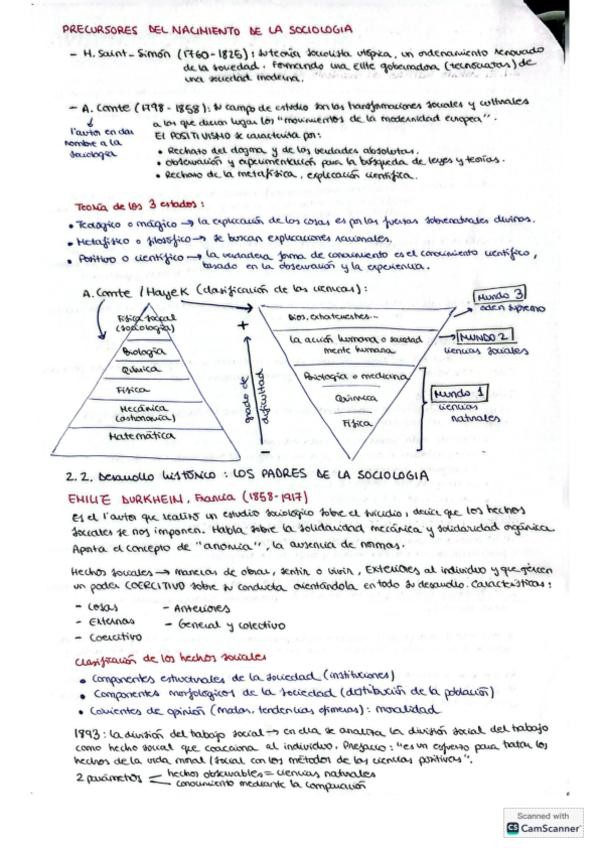 PRECURSORES DEL NACIMIENTO DE LA SOCIOLOGIA
- H. Saint-Simón (1760-1825): su teoría socialista utópica, un ordenamiento renovado
de la sociedad. Formando una élite gobernadora (tecnócratas) de
una sociedad moderna.
- A. Comte (1798-1858): su campo de estudio son las transformaciones sociales y culturales
a los que dieron lugar los "movimientos de la modernidad europea".
l'autor en dar
nombre a la
sociología
El POSITIVISMO se caracteriza por:
• Rechazo del dogma y de las verdades absolutas.
• Observación y experimentación para la búsqueda de leyes y teorías.
• Rechazo de la metafísica, explicación científica.
Teoría de los 3 estados:
• Teológico o mágico → la explicación de las cosas es por las fuerzas sobrenaturales divinas.
• Metafísico o filosófico → se buscan explicaciones racionales.
• Positivo o científico → la verdadera forma de conocimiento es el conocimiento científico,
basado en la observación y la experiencia.
A. Comte / Hayek (clasificación de las ciencias):
Física social
(sociología)
Biología
Química
Física
Mecánica
(astronomía)
Matemática
+
grado de
dificultad
-
Dios, extraterrestres...
La acción humana o sociedad
mente humana
Biología o medicina
Química
Física
Mundo 3
orden supremo
MUNDO 2
ciencias sociales
Mundo 1
ciencias
naturales
2.2. Desarrollo histórico: LOS PADRES DE LA SOCIOLOGIA
EMILE DURKHEIN, Francia (1858-1917)
Es el l'autor que realizó un estudio sociológico sobre el suicidio, decía que los hechos
sociales se nos imponen. Habla sobre la solidaridad mecánica y solidaridad orgánica.
Aporta el concepto de "anomia", la ausencia de normas.
Hechos sociales → maneras de obrar, sentir o vivir, EXTERIORES al individuo y que ejercen
un poder COERCITIVO sobre su conducta orientándola en todo su desarrollo. Características:
- Cosas
- Externas
- Coercitivo
- Anteriores
- General y colectivo
Clasificación de los hechos sociales
• Componentes estructurales de la sociedad (instituciones)
• Componentes morfológicos de la sociedad (distribución de la población)
• Corrientes de opinión (modas, tendencias efímeras): moralidad
1893: la división del trabajo social → en ella se analiza la división social del trabajo
como hecho social que coacciona al individuo. Prefacio: "es un esfuerzo para tratar los
hechos de la vida moral/social con los métodos de las ciencias positivas".
2 parámetros
hechos observables = ciencias naturales
conocimiento mediante la comparación
Scanned with
CS CamScanner